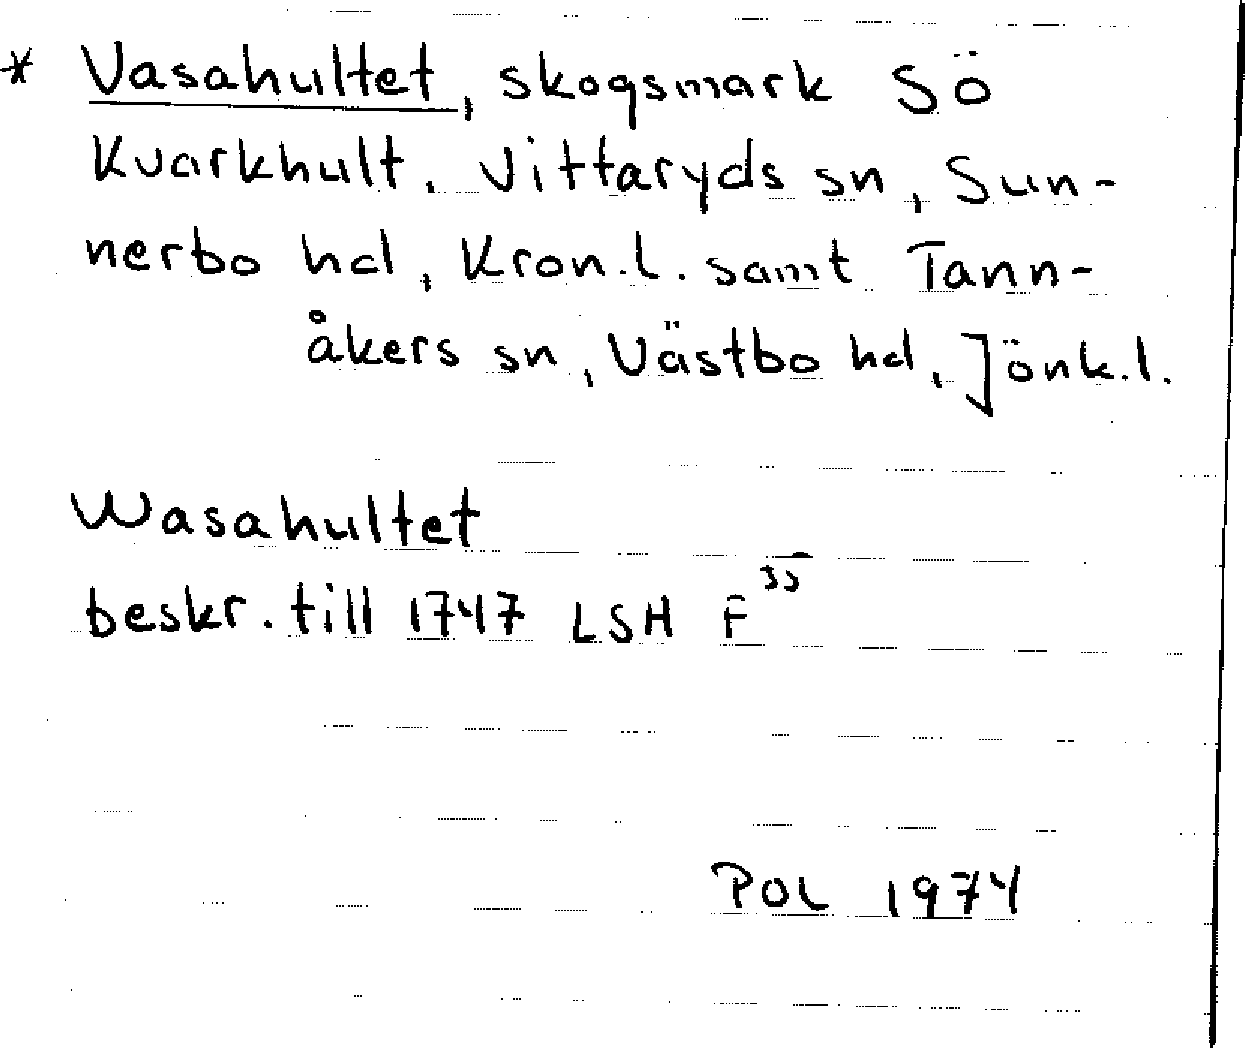 * Vasahultet, skogsmark SÖ
Kvarkhult. Vittaryds sn, Sun-
nerbo hd, Kron.l. samt Tann-
åkers sn, Västbo hd, Jönk.l.
Wasahultet
beskr. till 1747 LSH F
POL 1974